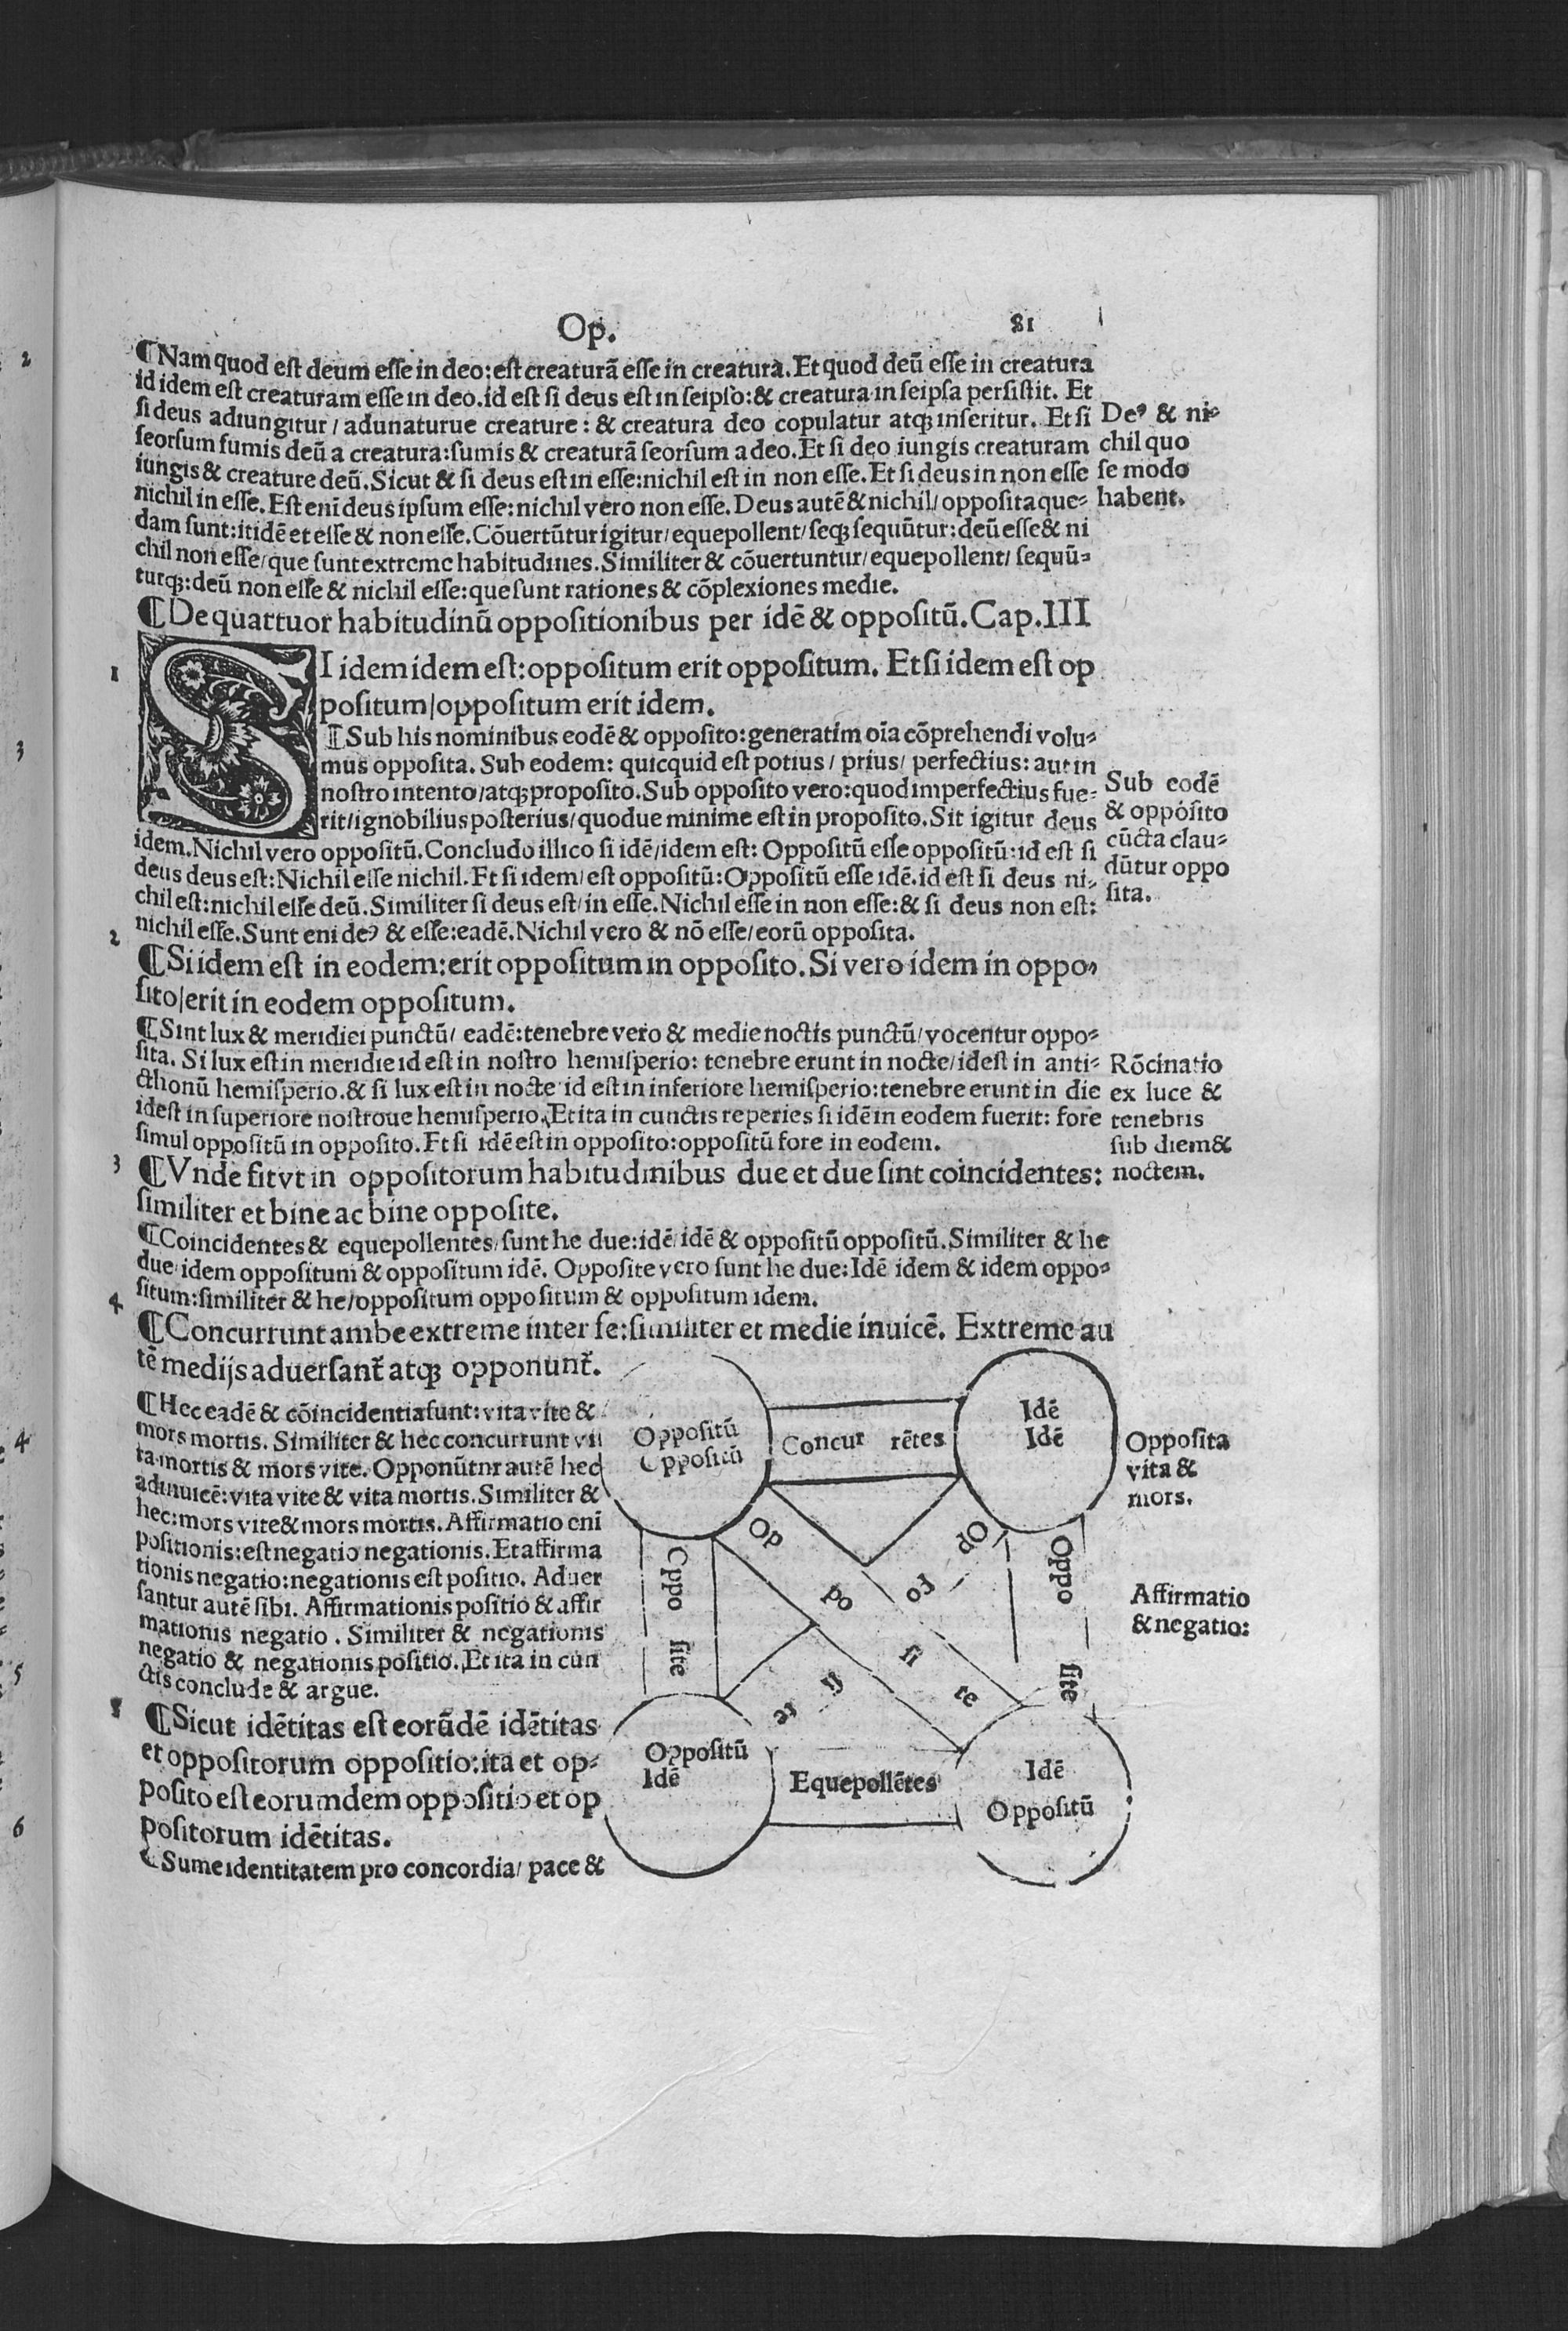 Op.
81
¶Nam quod est deum esse in deo: est creaturā esse in creatura. Et quod deū esse in creatura
id idem est creaturam esse in deo. id est si deus est in seipso: & creatura in seipsa persistit. Et
si deus adiungitur / adunaturue creature: & creatura deo copulatur atqꝫ inseritur. Et si
seorsum sumis deū a creatura: sumis & creaturā seorsum a deo. Et si deo iungis creaturam
iungis & creature deū. Sicut & si deus est in esse: nichil est in non esse. Et si deus in non esse
nichil in esse. Est eni deus ipsum esse: nichil vero non esse. Deus autē & nichil / opposita que-
dam sunt: itidē et esse & non esse. Cōuertūtur igitur / equepollent / seqꝫ sequūtur: deū esse & ni
chil non esse / que sunt extreme habitudines. Similiter & cōuertuntur / equepollent / sequū-
turqꝫ: deū non esse & nichil esse: que sunt rationes & cōplexiones medie.
Deꝰ & ni-
chil quo
se modo
habent.
¶De quattuor habitudinū oppositionibus per idē & oppositū. Cap. III
1
SI idem idem est: oppositum erit oppositum. Et si idem est op
positum / oppositum erit idem.
¶Sub his nominibus eodē & opposito: generatim oīa cōprehendi volu-
mus opposita. Sub eodem: quicquid est potius / prius / perfectius: aut in
nostro intento / atqꝫ proposito. Sub opposito vero: quod imperfectius fue-
rit / ignobilius posterius / quodue minime est in proposito. Sit igitur deus
idem. Nichil vero oppositū. Concludo illico si idē / idem est: Oppositū esse oppositū: id est si
deus deus est: Nichil esse nichil. Et si idem / est oppositū: Oppositū esse idē. id est si deus ni-
chil est: nichil esse deū. Similiter si deus est / in esse. Nichil esse in non esse: & si deus non est:
nichil esse. Sunt eni deꝰ & esse: eadē. Nichil vero & nō esse / eorū opposita.
Sub eodē
& opposito
cūcta clau-
dūtur oppo
sita.
2
¶Si idem est in eodem: erit oppositum in opposito. Si vero idem in oppo-
sito / erit in eodem oppositum.
¶Sint lux & meridiei punctū / eadē: tenebre vero & medie noctis punctū / vocentur oppo-
sita. Si lux est in meridie id est in nostro hemisperio: tenebre erunt in nocte / id est in anti-
cthonū hemisperio. & si lux est in nocte id est in inferiore hemisperio: tenebre erunt in die
idest in superiore nostroue hemisperio. Et ita in cunctis reperies si idē in eodem fuerit: fore
simul oppositū in opposito. Et si idē est in opposito: oppositū fore in eodem.
Rōcinatio
ex luce &
tenebris
sub diem &
noctem.
3
¶Vnde fit vt in oppositorum habitudinibus due et due sint coincidentes:
similiter et bine ac bine opposite.
¶Coincidentes & equepollentes / sunt he due: idē idē & oppositū oppositū. Similiter & he
due / idem oppositum & oppositum idē. Opposite vero sunt he due: Idē idem & idem oppo-
situm: similiter & he / oppositum oppositum & oppositum idem.
4
¶Concurrunt ambe extreme inter se: similiter et medie inuicē. Extreme au
tē medijs aduersant̄ atqꝫ opponunt̄.
¶Hec eadē & cōincidentia sunt: vita vite &
mors mortis. Similiter & hec concurrunt vi
ta mortis & mors vite. Opponūtur autē hec
adinuicē: vita vite & vita mortis. Similiter &
hec: mors vite & mors mortis. Affirmatio eni
positionis: est negatio negationis. Et affirma
tionis negatio: negationis est positio. Aduer
santur autē sibi. Affirmationis positio & affir
mationis negatio. Similiter & negationis
negatio & negationis positio. Et ita in cun
ctis conclude & argue.
¶Sicut idētitas est eorūdē idētitas
et oppositorum oppositio: ita et op-
posito est eorumdem oppositio et op
positorum idētitas.
¶Sume identitatem pro concordia / pace &
Oppositū
Oppositū
Concur rētes
Idē
Idē
Oppo site
Op po si te
Op po si te
Oppo site
Oppositū
Idē
Equepollētes
Idē
Oppositū
Opposita
vita &
mors.
Affirmatio
& negatio:
2
3
4
5
6